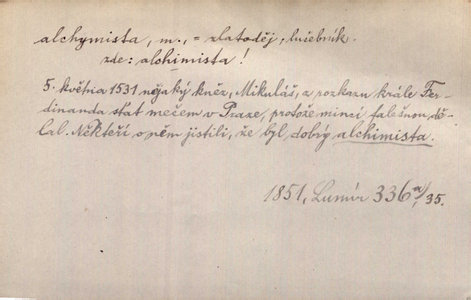 alchymista, m., = zlatoděj, lučebník.
zde: alchimista!
5. května 1531 nějaký kněz, Mikuláš, z rozkazu krále Fer-
dinanda stat mečem v Praze, protože minci falešnou dě-
lal. Někteří o něm jistili, že byl dobrý alchimista.
1851, Lumír 336a/35.